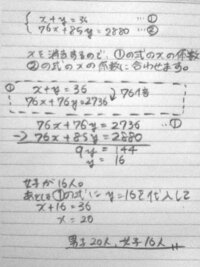 x+y=36 …①
76x+85y=2880 …②
xを消去するので、①の式のxの係数を
②の式のxの係数に合わせます。
x+y=36
76x+76y=2736
76倍
76x+76y=2736 ①
-) 76x+85y=2880
9y=144
y=16
女子が16人。
あとは①の式にy=16を代入して
x+16=36
x=20
男子20人、女子16人